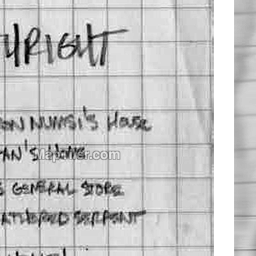 YRIGHT
ON NUMSI'S HOUSE
AN'S HOME
S GENERAL STORE
ATHERED SERPENT